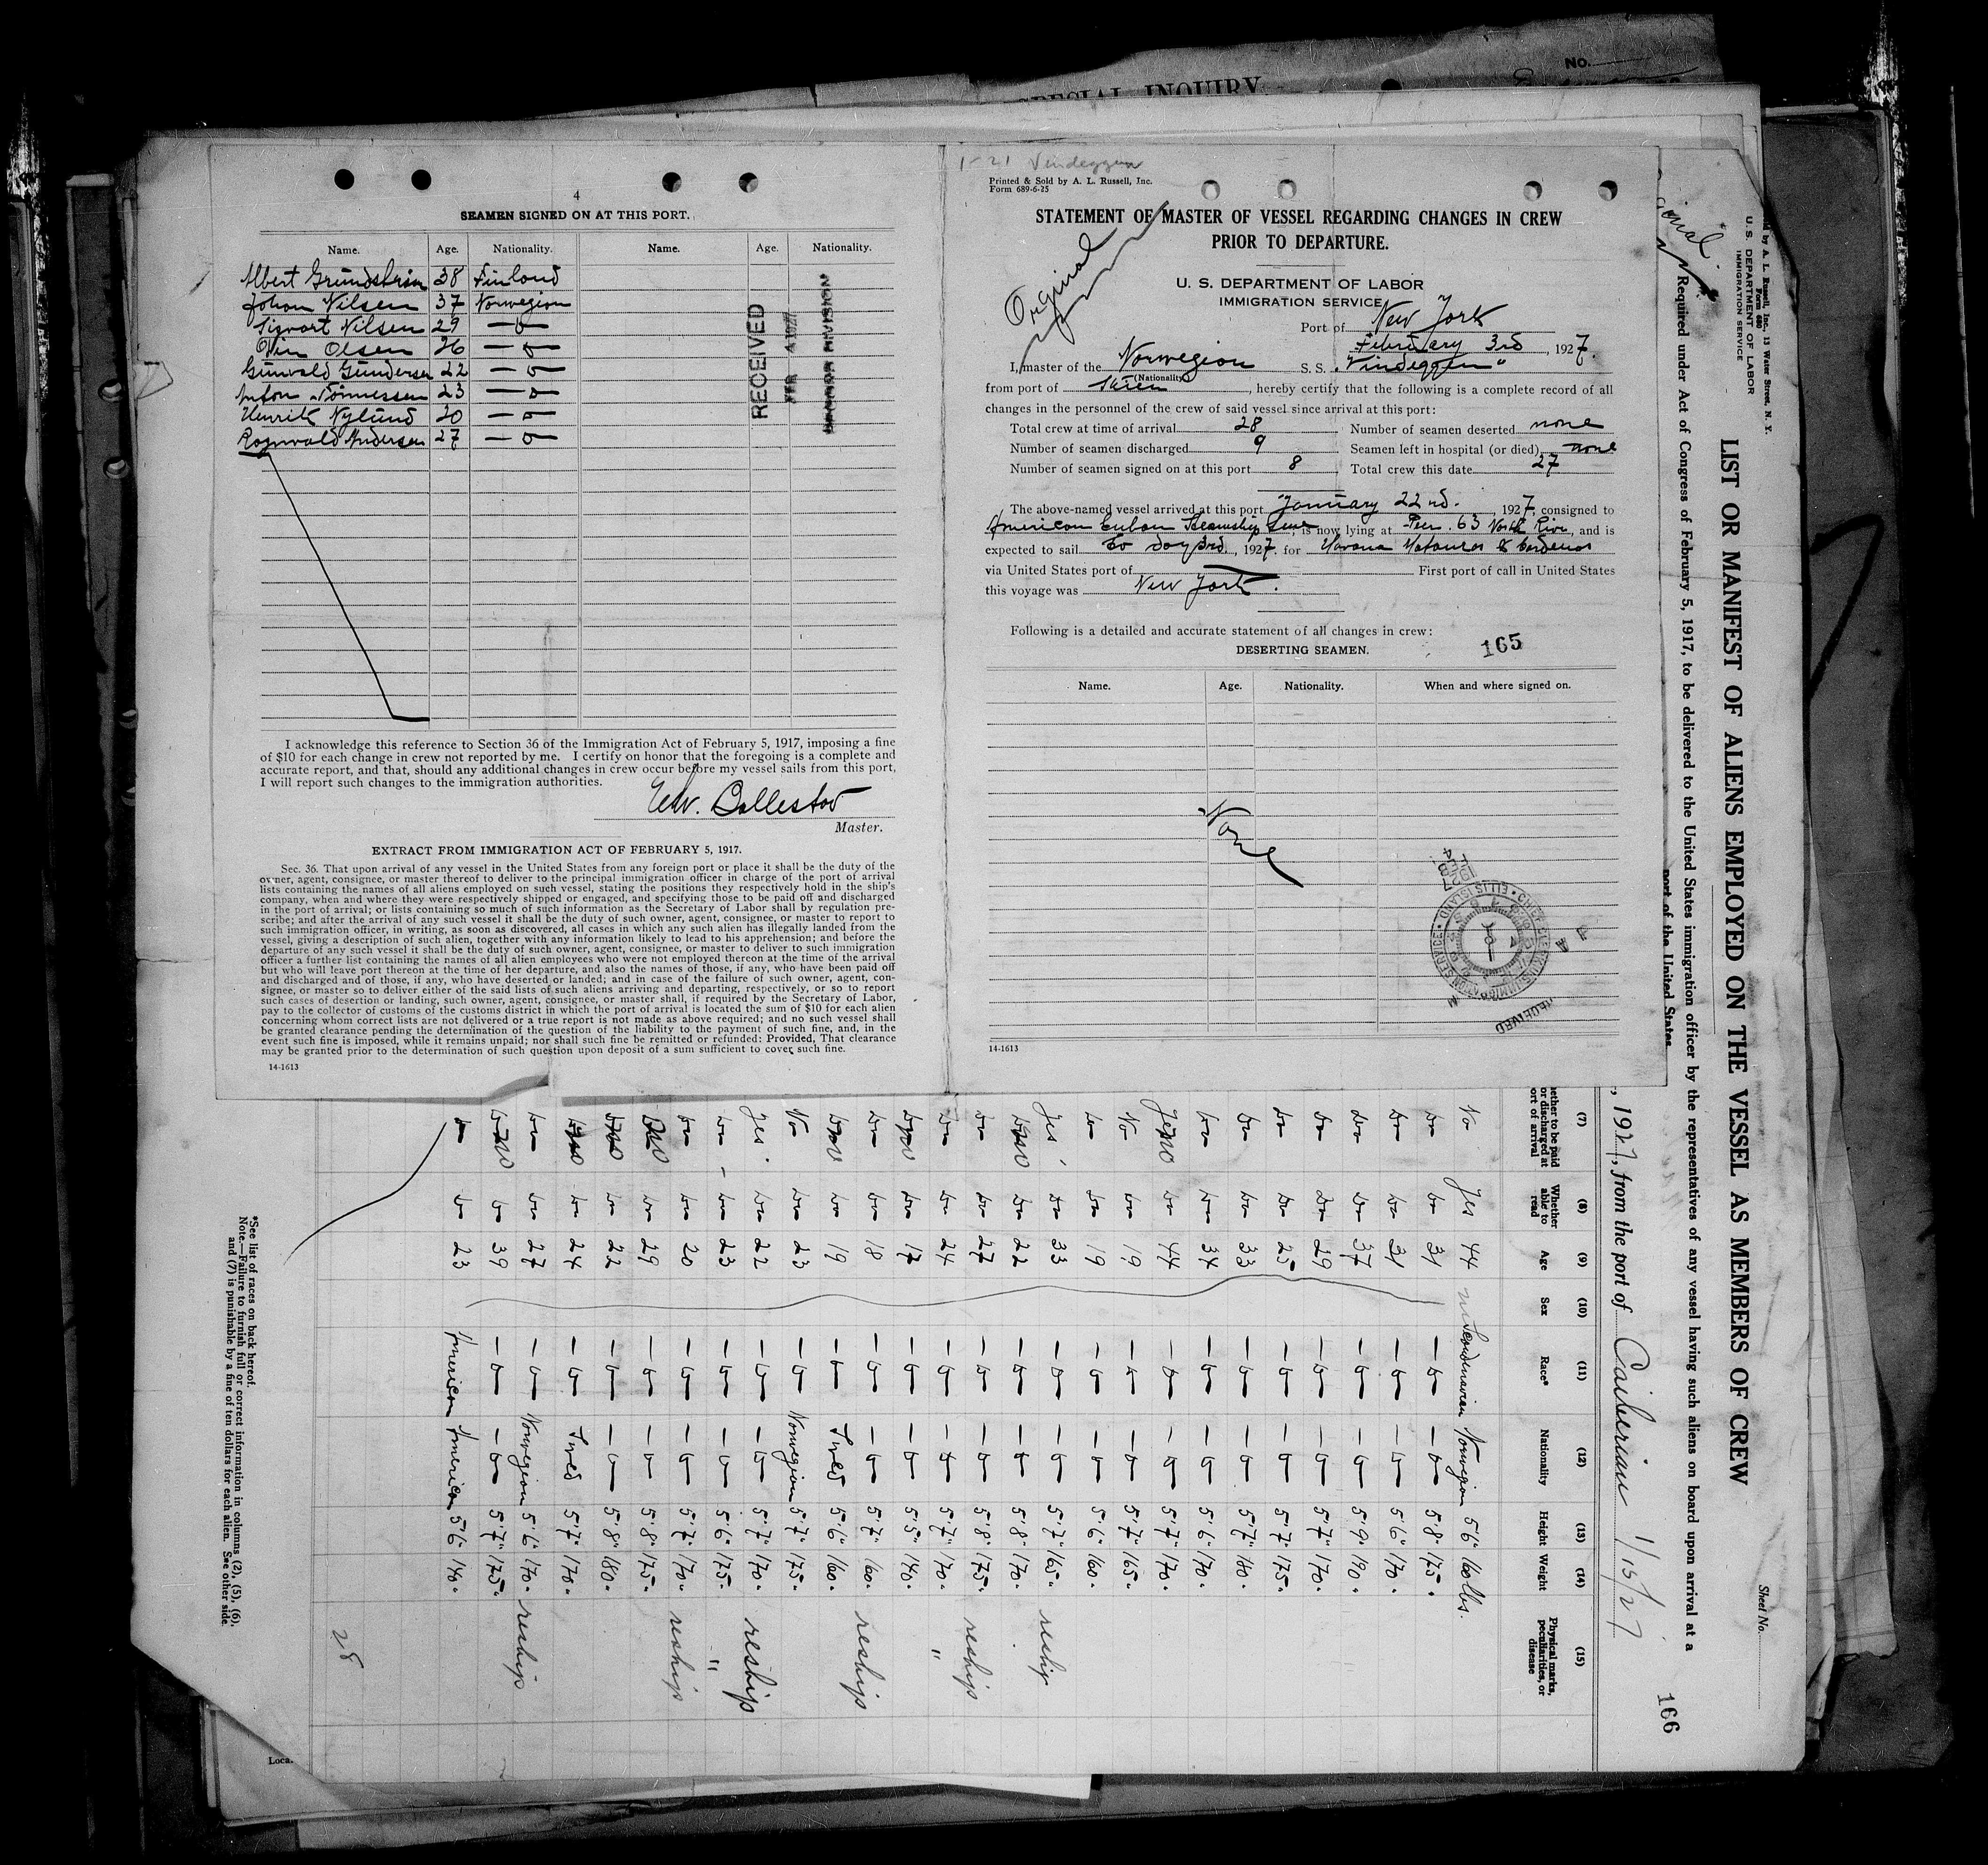 SPECIAL INQUIRY
No.
4
SEAMEN SIGNED ON AT THIS PORT.
Name. Age. Nationality. Name. Age. Nationality.
Albert Grundström 38 Finland
Johan Nilsen 37 Norwegian
Sigvart Nilsen 29 — " —
Olsen 26 — " —
Gunvald Gundersen 22 — " —
Anton Tönnessen 23 — " —
Henrik Nylund 20 — " —
Ragnvald Andersen 27 — " —
RECEIVED
FEB 4 1927
DIVISION
I acknowledge this reference to Section 36 of the Immigration Act of February 5, 1917, imposing a fine
of $10 for each change in crew not reported by me. I certify on honor that the foregoing is a complete and
accurate report, and that, should any additional changes in crew occur before my vessel sails from this port,
I will report such changes to the immigration authorities.
Master.
EXTRACT FROM IMMIGRATION ACT OF FEBRUARY 5, 1917.
Sec. 36. That upon arrival of any vessel in the United States from any foreign port or place it shall be the duty of the
owner, agent, consignee, or master thereof to deliver to the principal immigration officer in charge of the port of arrival
lists containing the names of all aliens employed on such vessel, stating the positions they respectively hold in the ship's
company, when and where they were respectively shipped or engaged, and specifying those to be paid off and discharged
in the port of arrival; or lists containing so much of such information as the Secretary of Labor shall by regulation pre-
scribe; and after the arrival of any such vessel it shall be the duty of such owner, agent, consignee, or master to report to
such immigration officer, in writing, as soon as discovered, all cases in which any such alien has illegally landed from the
vessel, giving a description of such alien, together with any information likely to lead to his apprehension; and before the
departure of any such vessel it shall be the duty of such owner, agent, consignee, or master to deliver to such immigration
officer a further list containing the names of all alien employees who were not employed thereon at the time of the arrival
but who will leave port thereon at the time of her departure, and also the names of those, if any, who have been paid off
and discharged and of those, if any, who have deserted or landed; and in case of the failure of such owner, agent, con-
signee, or master so to deliver either of the said lists of such aliens arriving and departing, respectively, or so to report
such cases of desertion or landing, such owner, agent, consignee, or master shall, if required by the Secretary of Labor,
pay to the collector of customs of the customs district in which the port of arrival is located the sum of $10 for each alien
concerning whom correct lists are not delivered or a true report is not made as above required; and no such vessel shall
be granted clearance pending the determination of the question of the liability to the payment of such fine, and, in the
event such fine is imposed, while it remains unpaid; nor shall such fine be remitted or refunded: Provided, That clearance
may be granted prior to the determination of such question upon deposit of a sum sufficient to cover such fine.
14-1613
1-21 Vindeggen
Printed & Sold by A. L. Russell, Inc.
Form 689-6-25
STATEMENT OF MASTER OF VESSEL REGARDING CHANGES IN CREW
PRIOR TO DEPARTURE.
Original
U. S. DEPARTMENT OF LABOR
IMMIGRATION SERVICE
Port of New York
February 3rd, 1927.
I, master of the Norwegian S. S. "Vindeggen"
(Nationality)
from port of, hereby certify that the following is a complete record of all
changes in the personnel of the crew of said vessel since arrival at this port:
Total crew at time of arrival 28 Number of seamen deserted none
Number of seamen discharged 9 Seamen left in hospital (or died) none
Number of seamen signed on at this port 8 Total crew this date 27
The above-named vessel arrived at this port January 22nd., 1927, consigned to
American Cuban Steamship Line, is now lying at Pier. 63 North River, and is
expected to sail to day 3rd., 1927. for Havana Matanzas & Cardenas
via United States port of First port of call in United States
this voyage was New York.
Following is a detailed and accurate statement of all changes in crew:
DESERTING SEAMEN.
165
Name. Age. Nationality. When and where signed on.
None
CHIEF CLERK U.S. IMMIGRATION SERVICE • ELLIS ISLAND •
RECEIVED
14-1613
Original
by A. L. Russell, Inc., 13 Water Street, N. Y.
Form 680
U. S. DEPARTMENT OF LABOR
IMMIGRATION SERVICE
Sheet No.
LIST OR MANIFEST OF ALIENS EMPLOYED ON THE VESSEL AS MEMBERS OF CREW
Required under Act of Congress of February 5, 1917, to be delivered to the United States immigration officer by the representatives of any vessel having such aliens on board upon arrival at a
port of the United States
166
, 1927, from the port of Caibarien 1/15/27
(7) (8) (9) (10) (11) (12) (13) (14) (15)
ether to be paid or discharged at ort of arrival Whether able to read Age Sex Race* Nationality Height Weight Physical marks, peculiarities, or disease
No Yes 44 m Scandinavian Norwegian 5'6" 160 lbs.
Do Do 31 — " — — " — 5'8" 175 "
Do Do 31 — " — — " — 5'6" 170 "
Do Do 37 — " — — " — 5'9" 190 "
Do Do 29 — " — — " — 5'7" 170 "
Do Do 25 — " — — " — 5'7" 175 "
Do Do 33 — " — — " — 5'7" 180 "
Do Do 34 — " — — " — 5'6" 170 "
Yes no Do 44 — " — — " — 5'7" 170 "
No Do 19 — " — — " — 5'7" 165 "
Do Do 19 — " — — " — 5'6" 160 "
Yes Do 33 — " — — " — 5'7" 165 " reship
Do no Do 22 — " — — " — 5'8" 170 "
Do Do 27 — " — — " — 5'8" 175 " reship
Do Do 24 — " — — " — 5'7" 170 " "
Do no Do 17 — " — — " — 5'5" 140 "
Do Do 18 — " — — " — 5'7" 160 " reship
Do no Do 19 — " — Swed 5'6" 160 "
No Do 23 — " — Norwegian 5'7" 175 "
Yes Do 22 — " — — " — 5'7" 170 " reship
Do Do 23 — " — — " — 5'6" 175 " "
Do Do 20 — " — — " — 5'7" 170 " reship
Do no Do 29 — " — — " — 5'8" 175 "
Do no Do 22 — " — — " — 5'8" 180 "
Do no Do 24 — " — Swed 5'7" 170 "
Do Do 27 — " — Norwegian 5'6" 170 " reship
Do no Do 39 — " — — " — 5'7" 175 "
Do Do 23 American American 5'6" 140 "
28
*See list of races on back hereof.
Note.—Failure to furnish full or correct information in columns (2), (5), (6),
and (7) is punishable by a fine of ten dollars for each alien. See other side.
Loca